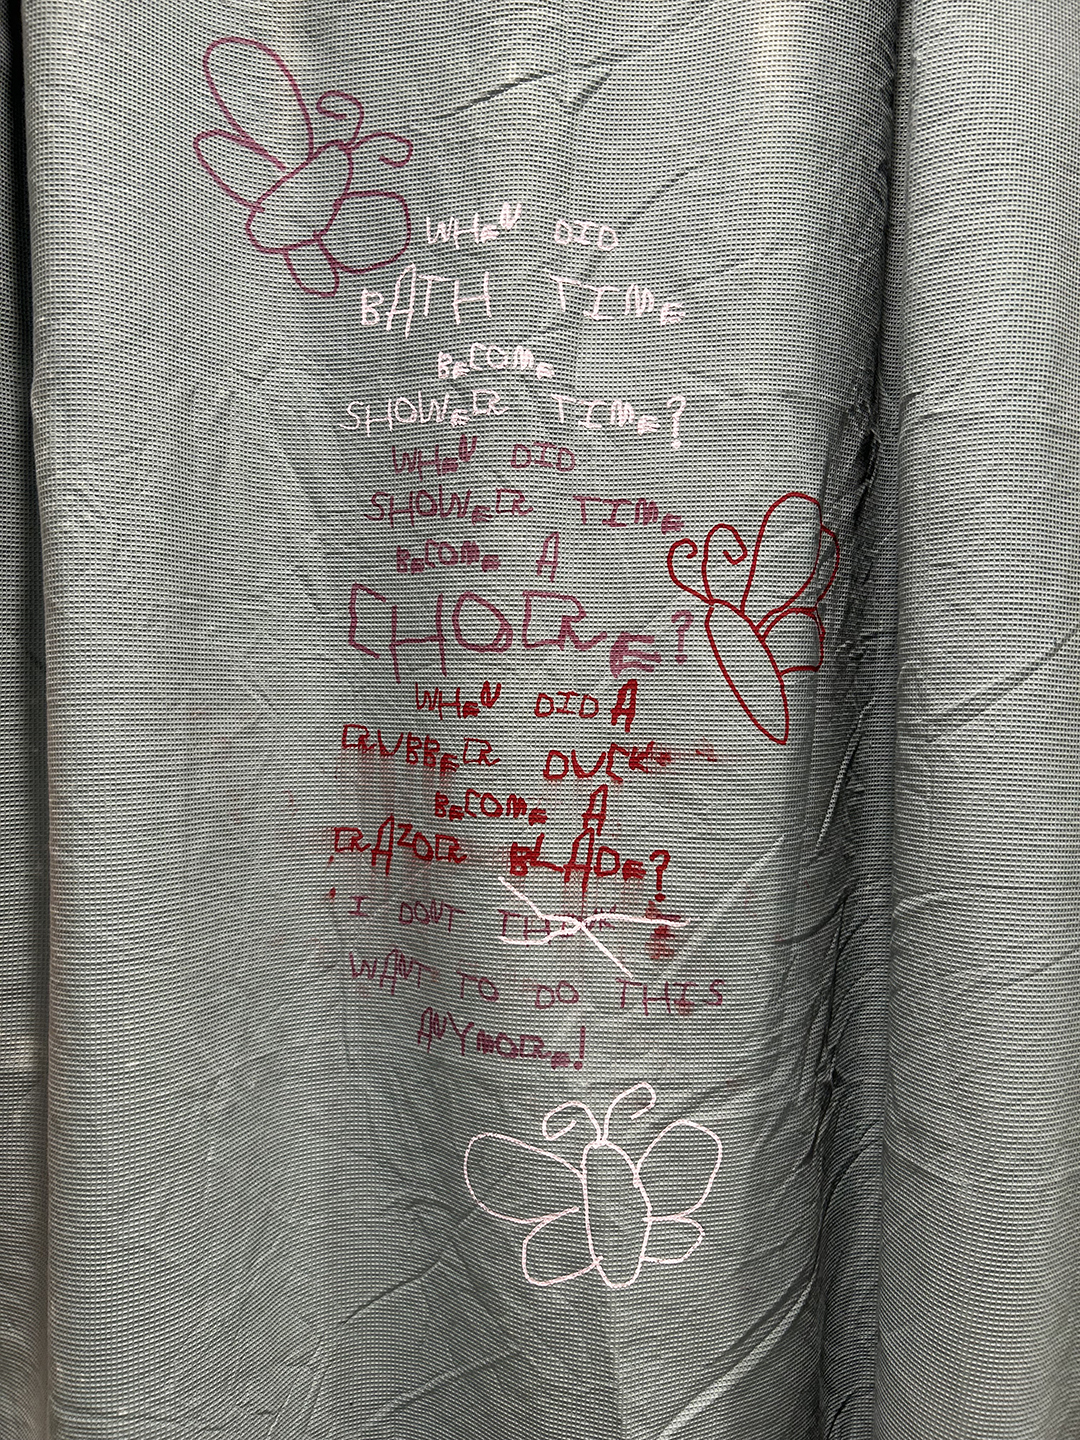 WHEN DID
BATH TIME
BECOME
SHOWER TIME?
WHEN DID
SHOWER TIME
BECOME A
CHORE?
WHEN DID A
RUBBER DUCKE
BECOME A
RAZOR BLADE?
I DONT THINK
WANT TO DO THIS
ANYMORE!